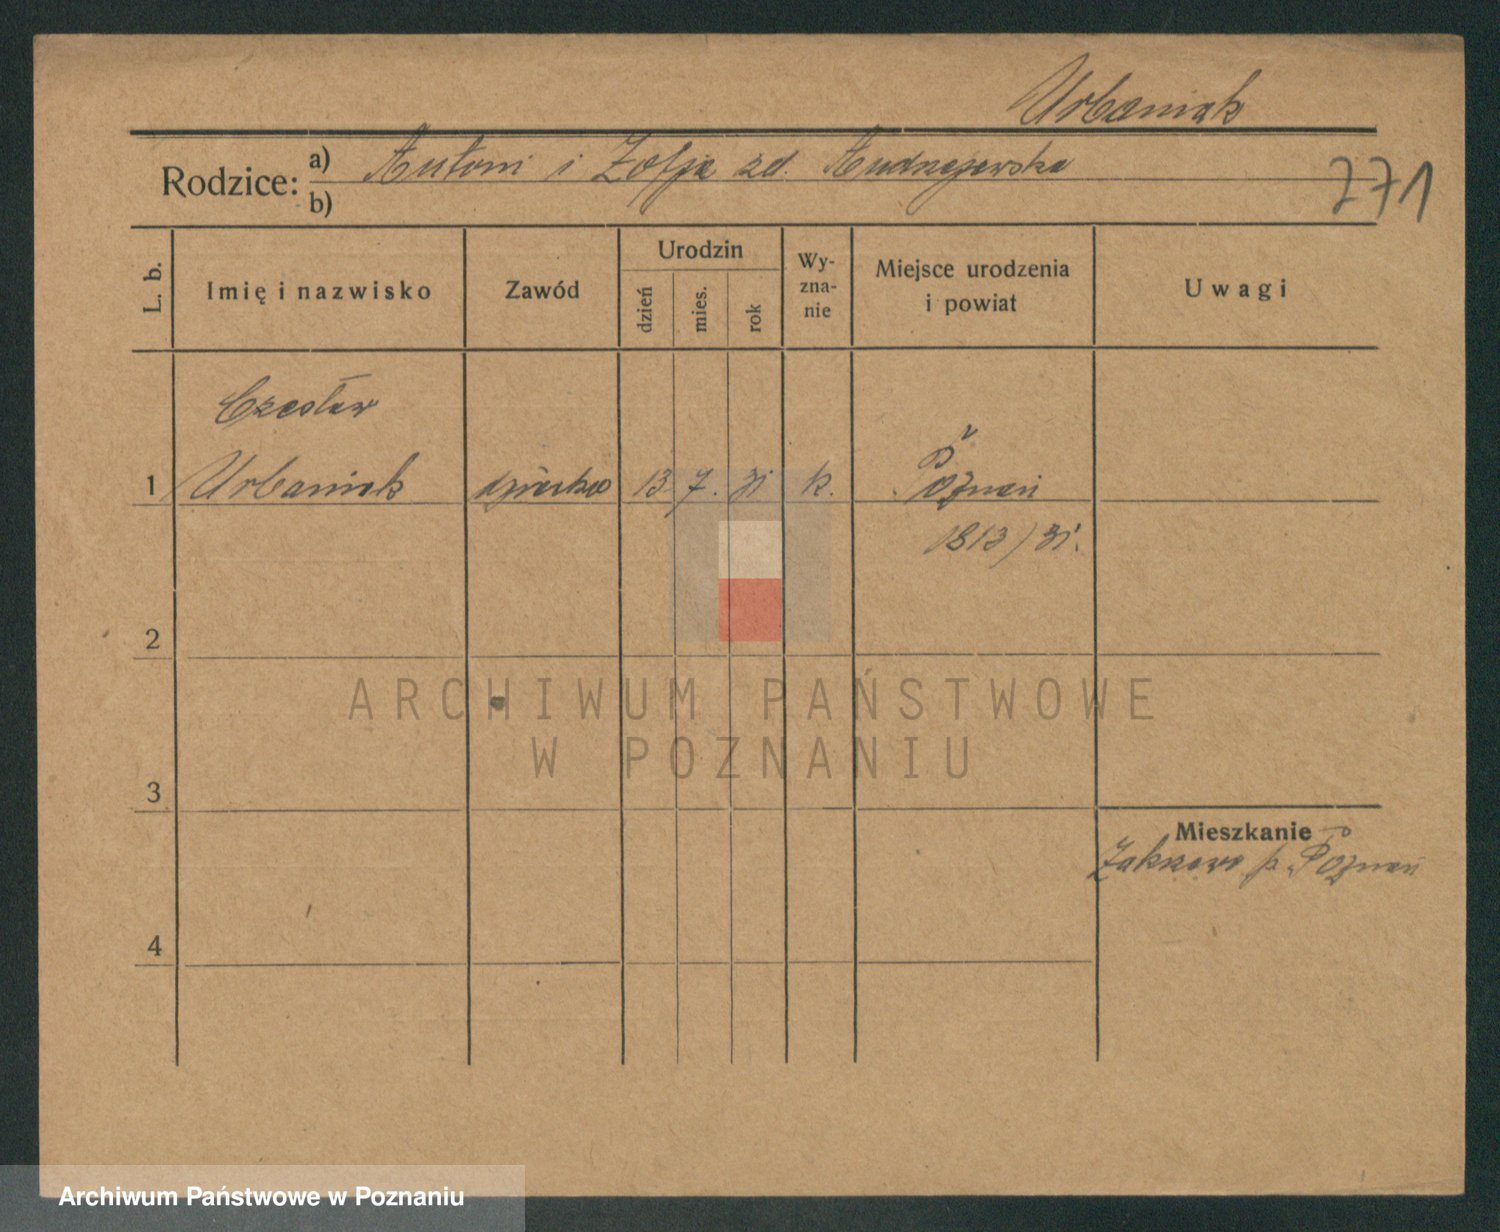 Urbaniak
Rodzice: a) Antoni i Zofja zd.
b)
771
L. b.
Imię i nazwisko
Zawód
Urodzin
dzień
mies.
rok
Wy-
zna-
nie
Miejsce urodzenia
i powiat
Uwagi
Czesław
1 Urbaniak dziecko 13 7. 31 k. Poznań
1813/31.
2
ARCHIWUM PAŃSTWOWE
W POZNANIU
3
Mieszkanie
p. Poznań
4
Archiwum Państwowe w Poznaniu